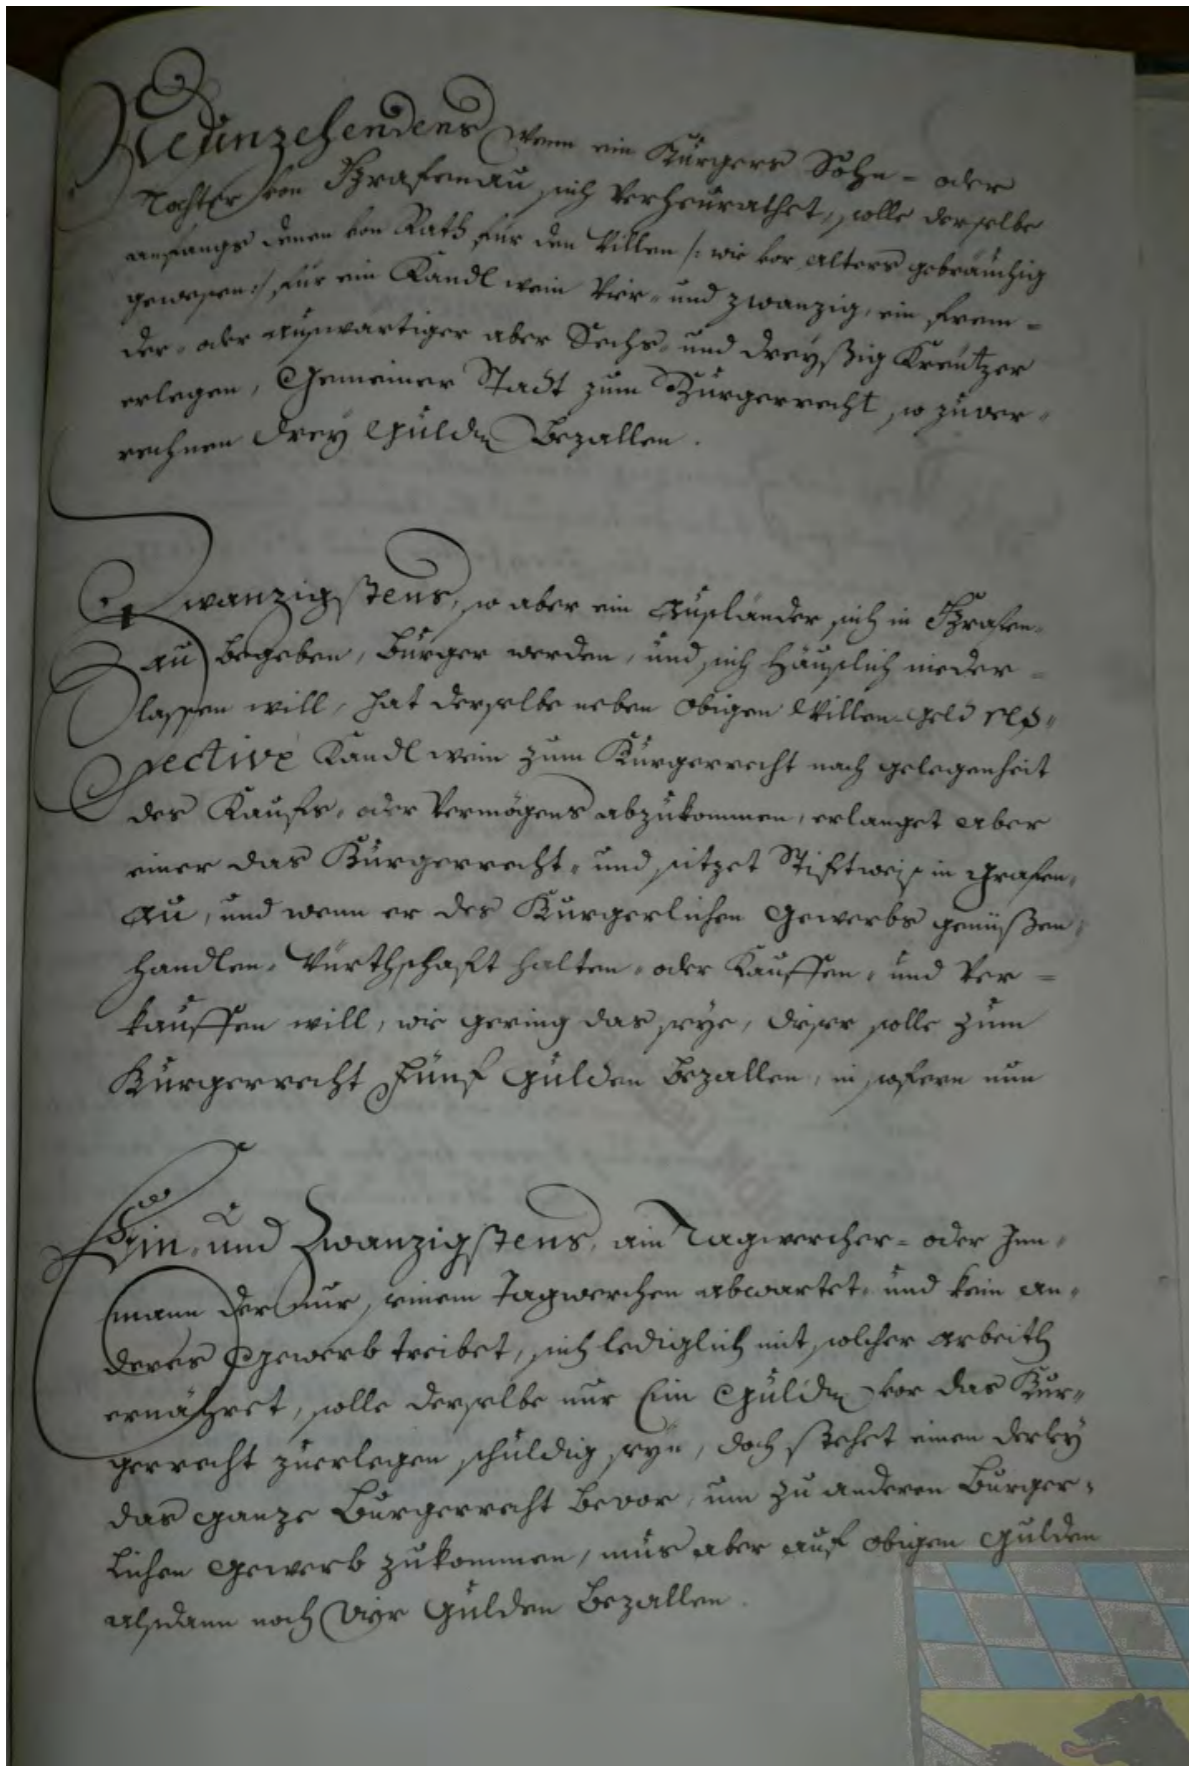 Neunzehendens wenn ein Burgers Sohn- oder
Tochter von Grafenau sich verheurathet, solle derselbe
anfangs denen von Rath für den Willen /: wie vor alters gebräuchig
gewesen :/ für ein Kandl wein Vier- und zwanzig, ein frem-
der- oder auswartiger aber Sechs- und dreyßig Kreutzer
erlegen, Gemeiner Stadt zum Burgerrecht so zuver-
rechnen drey Gulden Bezallen.
Zwanzigstens, so aber ein Ausländer sich in Grafen-
au begeben, Burger werden, und sich häuslich nieder-
lassen will, hat derselbe neben obigen Willen-geld res-
pective Kandl wein zum Burgerrecht nach gelegenheit
des Kaufs- oder Vermögens abzukommen, erlanget aber
einer das Burgerrecht- und sitzet Stiftweis in Grafen-
au, und wenn er des Burgerlichen Gewerbs genüßen,
handlen- Würthschaft halten- oder Kauffen- und Ver-
kauffen will, wie gering das seye, diser solle zum
Burgerrecht Fünf Gulden Bezallen, in sofern nun
Ein- und Zwanzigstens, ain Tagwercher- oder Inn-
mann der nur seinem Tagwerchen abwartet- und kein an-
deres Gewerb treibet, sich lediglich mit solcher arbeith
ernähret, solle derselbe nur Ein Gulden vor das Bur-
gerrecht zuerlegen schuldig seyn, doch stehet einen derley
das ganze Burgerrecht bevor, um zu anderen Burger-
lichen Gewerb zukommen, mus aber auf obigen Gulden
alsdann noch Vier Gulden Bezallen.